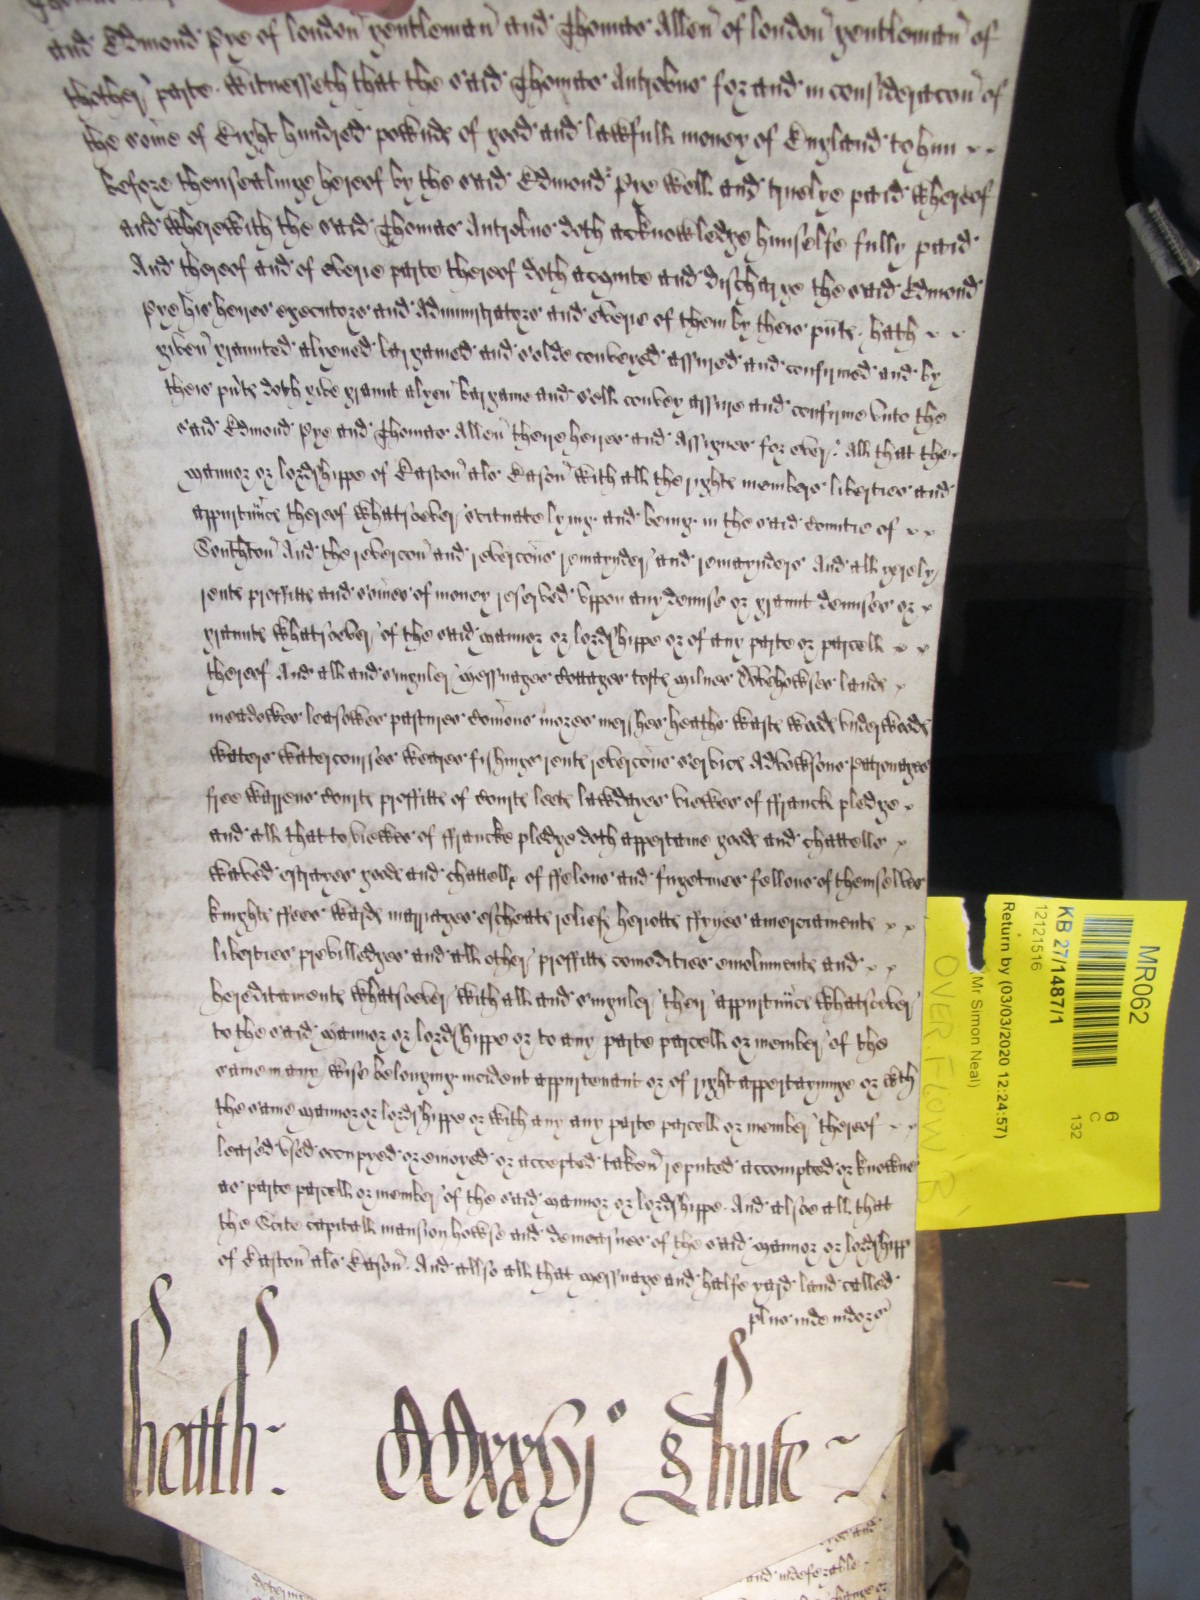 and Edmond Pye of london gentleman and Thomas Allen of london gentleman of
thother parte Witnesseth that the said Thomas Antrobus for and in consideracon of
the some of Eight hundred powndes of good and lawfull money of England to him
before thensealinge hereof by the said Edmond Pye well and truelye paid whereof
and wherewith the said Thomas Antrobus doth acknowledge himselfe fully paid
And thereof and of everie parte thereof doth acquite and discharge the said Edmond
Pye his heires executors and Administrators and everie of them by theis pnts hath
given graunted aliened bargained and solde conveyed assured and confirmed and by
theis pnts doth give graunt alyen bargaine and sell convey assure and confirme unto the
said Edmond Pye and Thomas Allen theire heires and Assignes for ever All that the
mannor or lordshippe of Easton als Eason with all the rights members liberties and
appurtnncs thereof whatsoever scituate lying and being in the said Countie of
Southton And the revercon and revercons remaynder and remaynders And all yerely
rents proffitts and somes of money reserved uppon any demise or graunt demises or
graunts whatsoever of the said mannor or lordshippe or of any parte or parcell
thereof And all and singuler messuages cottages tofts milnes Dovehowses lands
meadowes leasowes pastures comons mores mershes heaths wasts woods underwoods
waters watercourses weares fishings rents revercons services Advowsons Patronages
free warrens courts proffitts of courts leets lawdayes viewes of ffranck pledge
and all that to viewes of ffrancke pledge doth appertaine goods and chattells
waved estrayes goods and chattells of ffelons and fugetives fellons of themselves
knights ffees wards marriages escheats reliefs heriotts ffynes amerciaments
liberties previlledges and all other proffitts comodities emoluments and
hereditaments whatsoever with all and singuler their appurtnncs whatsoever
to the said mannor or lordshippe or to any parte parcell or member of the
same in any wise belonging incident appurtenant or of right appertayninge or wth
the same mannor or lordshippe or with any any parte parcell or member thereof
leased used occupyed or enioyed or accepted taken reputed accompted or knowne
as parte parcell or member of the said mannor or lordshippe And alsoe all that
the Scite capitall mansion howse and demeasnes of the said mannor or lordshipp
of Easton als Eason And allso all that messuage and halfe yard land called
plus inde in dorso
heath CCxxvj Shute
MR062
KB 27/1487/1
12121516
Return by (03/03/2020 12:24:57)
(Mr Simon Neal)
6
C
132
OVERFLOW B